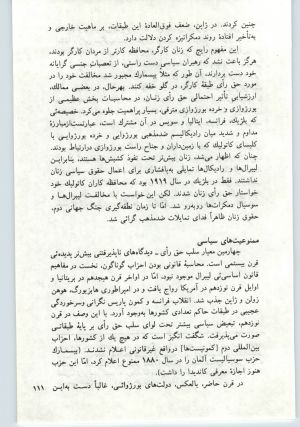 چنین کردند. در ژاپن، ضعف فوق‌العادهٔ این طبقات، بر ماهیت خارجی و
به‌تأخیر افتادهٔ روند دمکراتیزه کردن دلالت دارد.
این مفهوم رایج که زنان کارگر، محافظه کارتر از مردان کارگر بودند،
هرگز باعث نشد که رهبران سیاسی دست راستی، از تعصبات جنسی گرایانه
خود دست بردارند، آن طور که مثلا بیسمارک مجبور شد مخالفت خود را در
مورد حق رأی طبقهٔ کارگر، در گلو خفه کنند. بهرحال، در بعضی ممالک،
ارزشیابی تأثیر احتمالی حق رأی زنان، در محاسبات بخش عظیمی از
بورژوازی و خرده بورژوازی مترقی، بسیار پراهمیت جلوه می‌کرد. خصیصه‌ئی
که بلژیک، فرانسه، ایتالیا و سویس در آن مشترک است، عبارتست‌از‌مبارزهٔ
مداوم و شدید میان رادیکالیسم ضدمذهبی بورژوایی و خرده بورژوایی با
کلیسای کاتولیک که با زمین‌داران و جناح راست بورژوازی درارتباط بودند.
چنان که اظهار می‌شد، زنان بیش‌تر تحت نفوذ کشیش‌ها هستند، بنابراین
لیبرال‌ها و رادیکال‌ها، تمایلی به‌پافشاری برای اعمال حقوق سیاسی زنان
نداشتند. فقط در بلژیک در سال ۱۹۱۹ بود که محافظه کاران کاتولیک خود
خواستار حق رأی زنان شدند. لکن این‌خواست با مخالفت لیبرال‌ها و
سوسیال دمکرات‌ها روبه‌رو شد. اما تا زمان نطفه‌گیری جنگ جهانی دوم،
حقوق زنان ظاهراً فدای تمایلات ضدمذهب گرائی شد.
ممنوعیت‌های سیاسی
چهارمین معیار سلب حق رأی ـ دیدگاه‌های ناپذیرفتنی بیش‌تر پدیده‌ئی
قرن بیستمی است. محاسبهٔ قانونی بودن احزاب گوناگون، نخست در مفاهیم
قانون اساسی‌ئی لیبرال موجود نبود، اما در اواخر قرن هیجدهم در بریتانیا و
اوایل قرن نوزدهم در آمریکا رواج یافت و در امپراطوری هابزبورگ، هوهن
زولن و ژاپن جذب شد. انقلاب فرانسه و کمون پاریس نگرانی وسرخوردگی
عجیبی در طبقات حاکم تعدادی کشورها به‌وجود آورد. با این وصف در قرن
نوزدهم، تبعیض سیاسی بیشتر تحت لوای سلب حق رأی بر پایهٔ طبقاتی
صورت می‌پذیرفت. شگفت انگیز است که در هیچ یک از کشورها، احزاب
بین‌المللی دوم [کمونیست‌ها] درواقع غیرقانونی اعلام نشدند. (بیسمارک
حزب سوسیالیست آلمان را در سال ۱۸۸۰ ممنوع اعلام کرد، امّا این حزب
هنوز اجازهٔ معرفی کاندیدا را داشت).
در قرن حاضر، بالعکس، دولت‌های بورژوائی، غالباً دست به‌این
۱۱۱